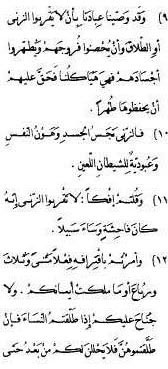 ٩) وَقَدْ وَصَّيْنَا عِبَادَنَا بِأَنْ لاَ يَقْرَبُوا الزِّنَى
أَوِ الطَّلاَقَ وَأَنْ يُحْصِنُوا فُرُوجَهُمْ وَيُطَهِّرُوا
أَجْسَادَهُمْ فَهِيَ هَيَاكِلُنَا فَحَقَّ عَلَيْهِمْ
أَنْ يَحْفَظُوهَا طُهْراً.
١٠) فَالزِّنَى نَجَسُ الْجَسَدِ وَهَوْنُ النَّفْسِ
وَعُبُودِيَّةٌ لِلشَّيْطَانِ اللَّعِينِ.
١١) وَقُلْتُمْ إِفْكاً: لاَ تَقْرَبُوا الزِّنَى إِنَّهُ
كَانَ فَاحِشَةً وَسَاءَ سَبِيلاً.
١٢) وَأَمَرْتُمْ بِاقْتِرَافِهِ فِعْلاً مَثْنَى وَثُلاَثَ
وَرُبَاعَ أَوْ مَا مَلَكَتْ أَيْمَانُكُمْ. وَلاَ
جُنَاحَ عَلَيْكُمْ إِذَا طَلَّقْتُمُ النِّسَاءَ فَإِنْ
طَلَّقْتُمُوهُنَّ فَلاَ يَحْلِلْنَ لَكُمْ مِنْ بَعْدُ حَتَّى